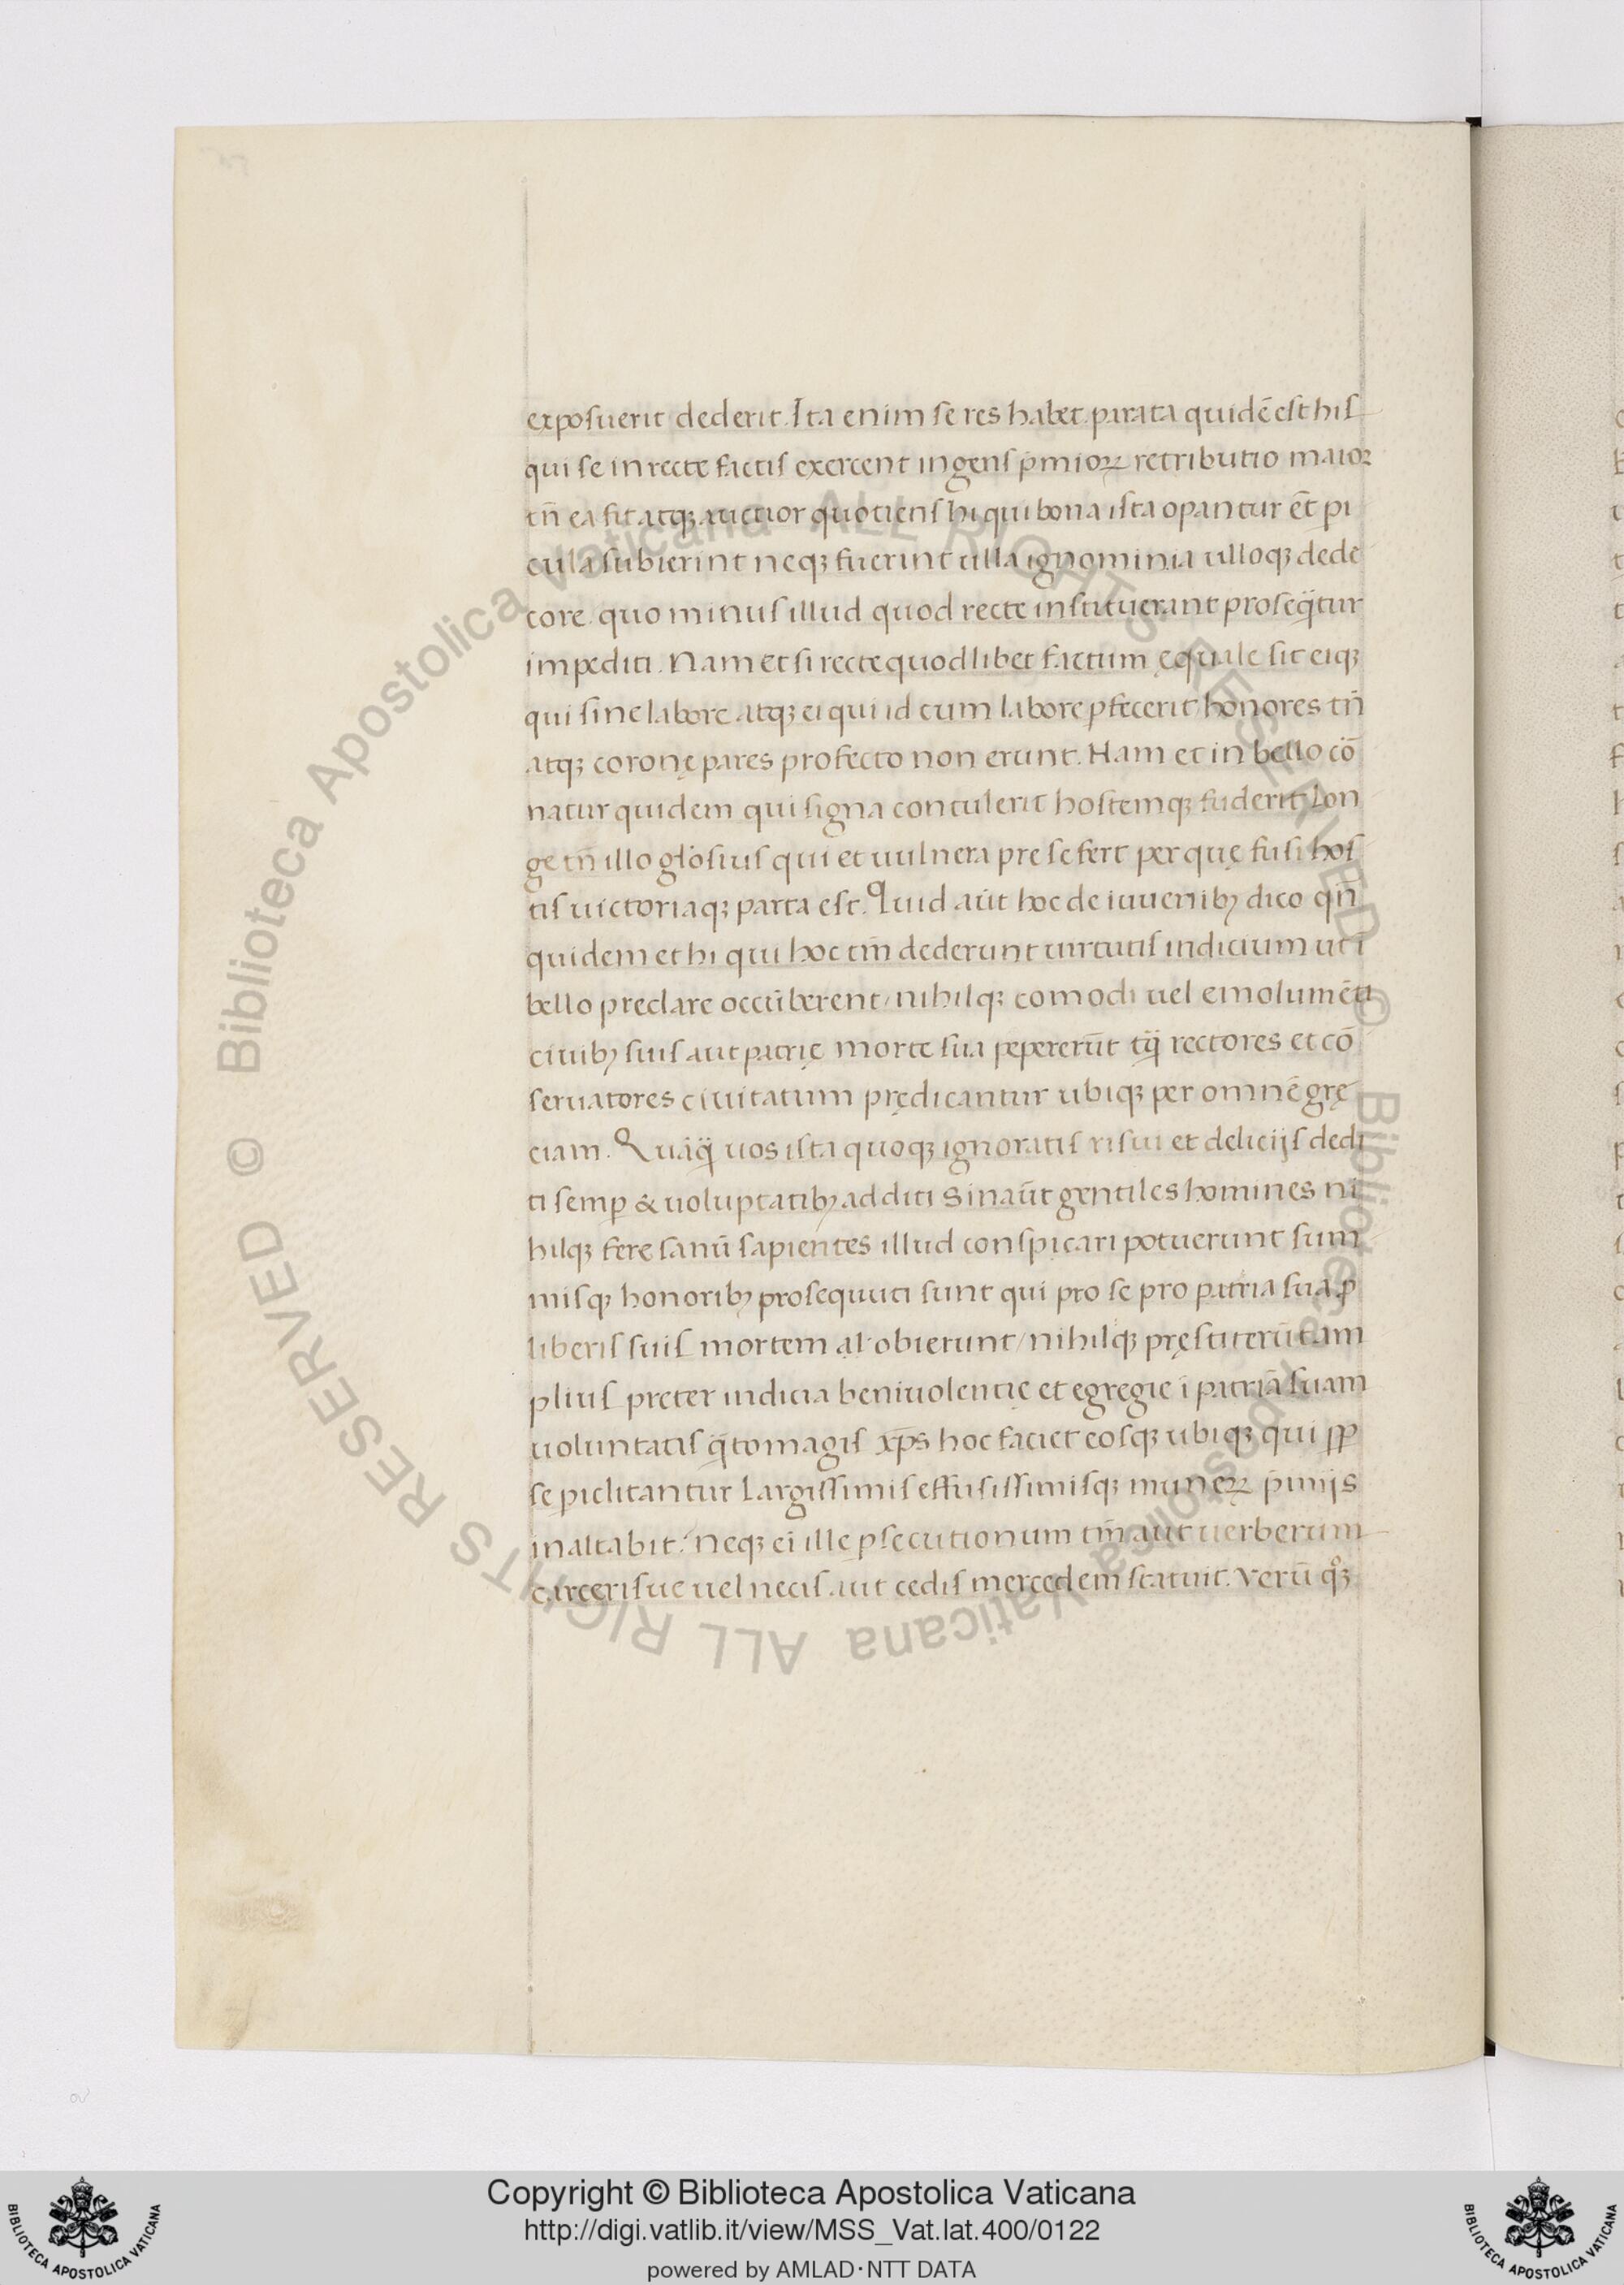 exposuerit dederit. Ita enim se res habet. parata quidē est his
qui se in recte factis exercent ingens p̄mioꝝ retributio maior
tn̄ ea fit atqꝫ auctior quotiens hi qui bona ista opantur ēt pi
cula subierint neqꝫ fuerint ulla ignominia ulloqꝫ dede
core. quo minus illud quod recte instituerant proseq̄tur
impediti. Nam et si recte quodlibet factum ęquale sit eiqꝫ
qui sine labore atqꝫ ei qui id cum labore ꝑfecerit honores tn̄
atqꝫ coronę pares profecto non erunt. Nam et in bello cō
natur quidem qui signa contulerit hostemqꝫ fuderit lon
ge tn̄ illo glo̅sius qui et uulnera pre se fert per quę fusi hos
tis uictoriaqꝫ parta est. Quid aūt hoc de iuuenibꝫ dico qn̄
quidem et hi qui hoc tm̄ dederunt uirtutis indicium ut ī
bello preclare occūberent / nihilqꝫ comodi uel emolumēti
ciuibꝫ suis aut patrię morte sua pepererūt tq̄ rectores et cō
seruatores ciuitatum prędicantur ubiqꝫ per omnē grę
ciam. Quāq̄ uos ista quoqꝫ ignoratis risui et delicijs dedi
ti semꝑ & uoluptatibꝫ additi Sin aūt gentiles homines ni
hilqꝫ fere sanū sapientes illud conspicari potuerunt sum
misqꝫ honoribꝫ prosequuti sunt qui pro se pro patria sua ꝓ
liberis suis mortem al' obierunt / nihilqꝫ pręstiterūt am
plius preter indicia beniuolentię et egregie ī patriā suam
uoluntatis q̄to magis xp̄s hoc faciet eosqꝫ ubiqꝫ qui ꝓp
se piclitantur largissimis effusissimisqꝫ muneꝝ p̄mijs
inaltabit. Neqꝫ ei ille ꝑsecutionum tm̄ aut uerberum
carcerisue uel necis aut cedis mercedem statuit. Verū qꝫ
Copyright © Biblioteca Apostolica Vaticana
http://digi.vatlib.it/view/MSS_Vat.lat.400/0122
powered by AMLAD·NTT DATA
BIBLIOTECA APOSTOLICA VATICANA
BIBLIOTECA APOSTOLICA VATICANA
Biblioteca Apostolica Vaticana ALL RIGHTS RESERVED ©
Biblioteca Apostolica Vaticana ALL RIGHTS RESERVED ©